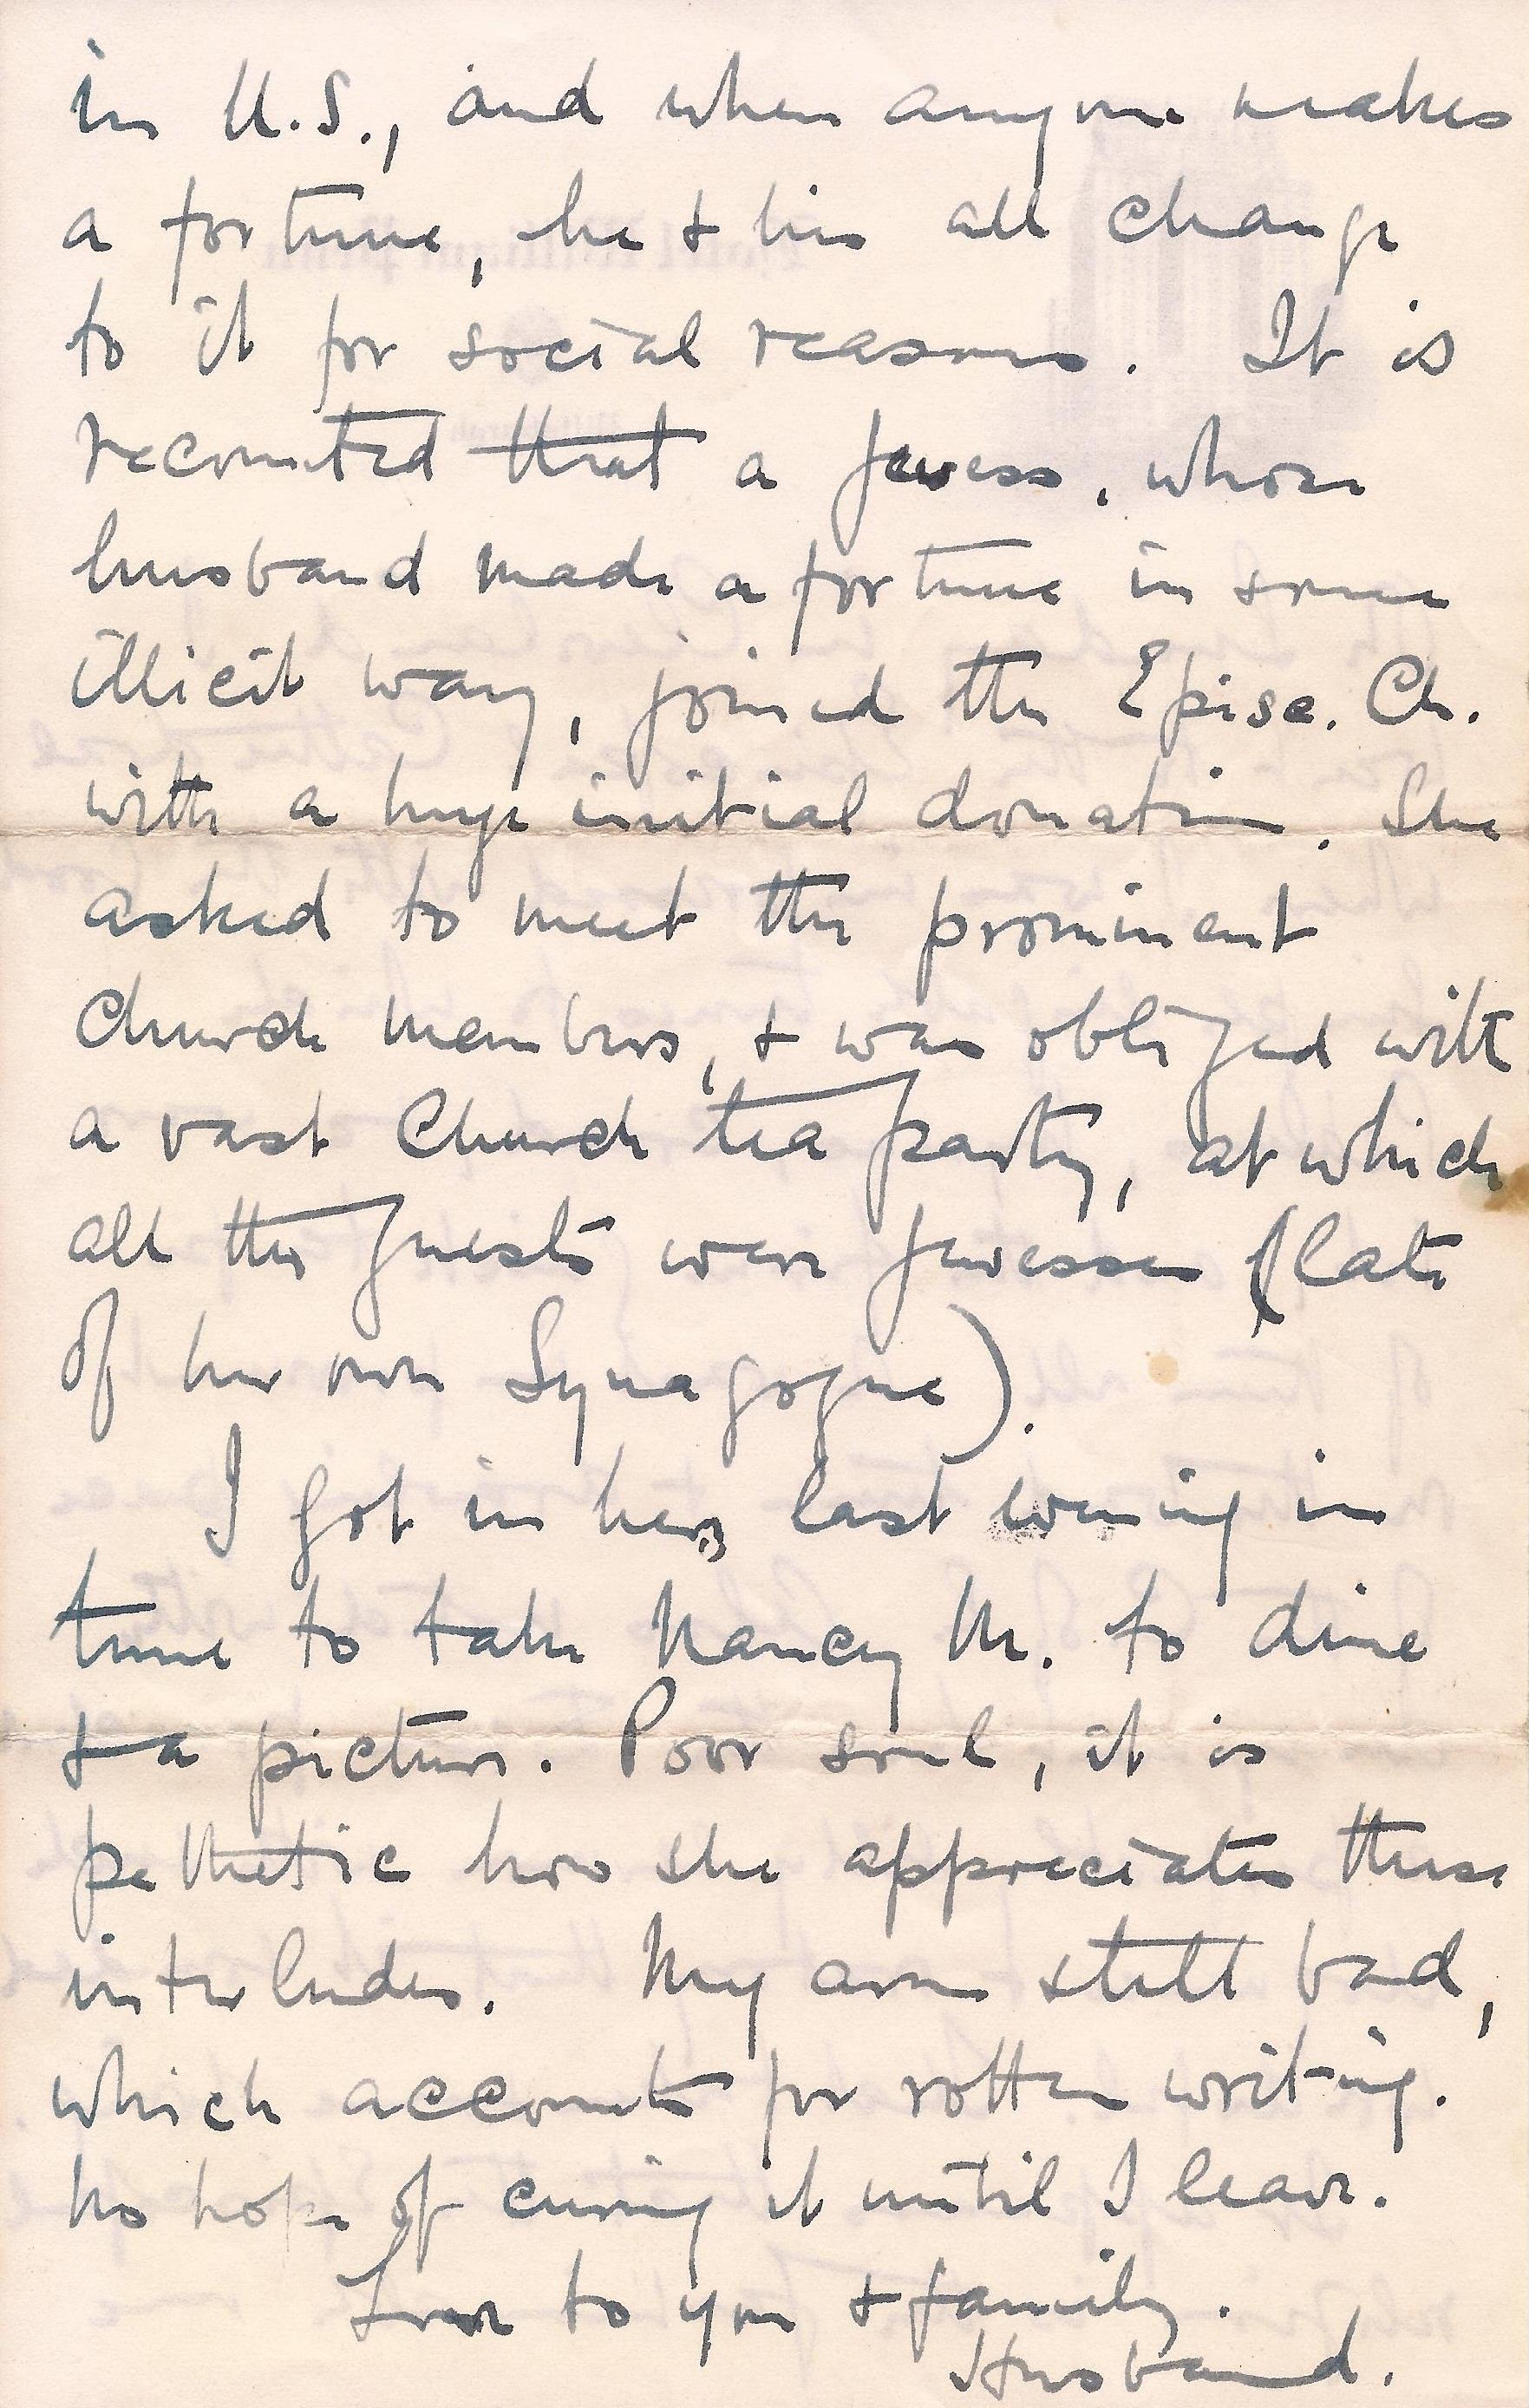 in U.S., and when anyone makes
a fortune, he & his all change
to it for social reasons. It is
recounted that a Jewess, whose
husband made a fortune in some
illicit way, joined the Episc. Ch.
with a huge initial donation. She
asked to meet the prominent
Church members, & was obliged with
a vast Church tea party, at which
all the guests were Jewesses (late
of her own Synagogue).
I got in here last evening in
time to take Nancy M. to dine
& a picture. Poor soul, it is
pathetic how she appreciates these
interludes. My arm still bad,
which accounts for rotten writing.
No hope of curing it until I leave.
Love to you & family.
Husband.